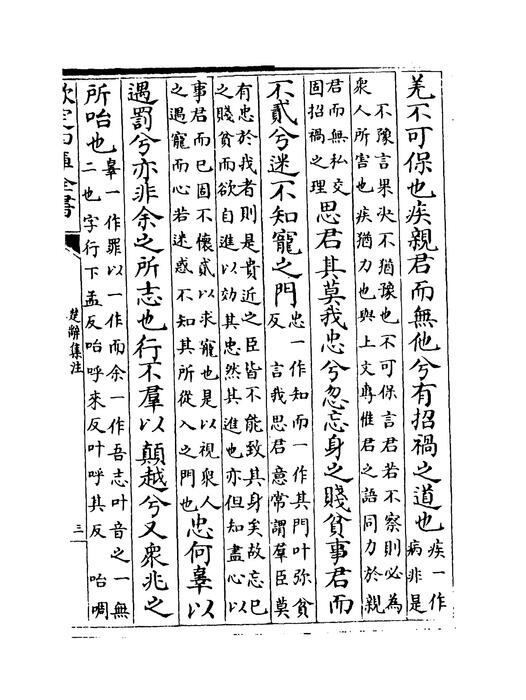 羌不可保也疾親君而無他兮有招禍之道也疾一作
病非是
不豫言果决不猶豫也不可保言君若不察則必為
衆人所害也疾猶力也與上文専惟君之語同力於親
君而無私交
固招禍之理
思君其莫我忠兮忽忘身之賤貧事君而
不貳兮迷不知寵之門忠一作知而一作其門叶彌貧
反 言我思君意常謂羣臣莫
有忠於我者則是貴近之臣皆不能致其身矣故忘已
之賤貧而欲自進以効其忠然其進也亦但知盡心以
事君而已固不懐貳以求寵也是以視衆人
之遇寵而心若迷惑不知其所從入之門也
忠何辜以
遇罰兮亦非余之所志也行不羣以顛越兮又衆兆之
所咍也辜一作罪以一作而余一作吾志叶音之一無
二也字行下孟反咍呼來反叶呼其反 咍啁
欽定四庫全書
楚辭集注
三